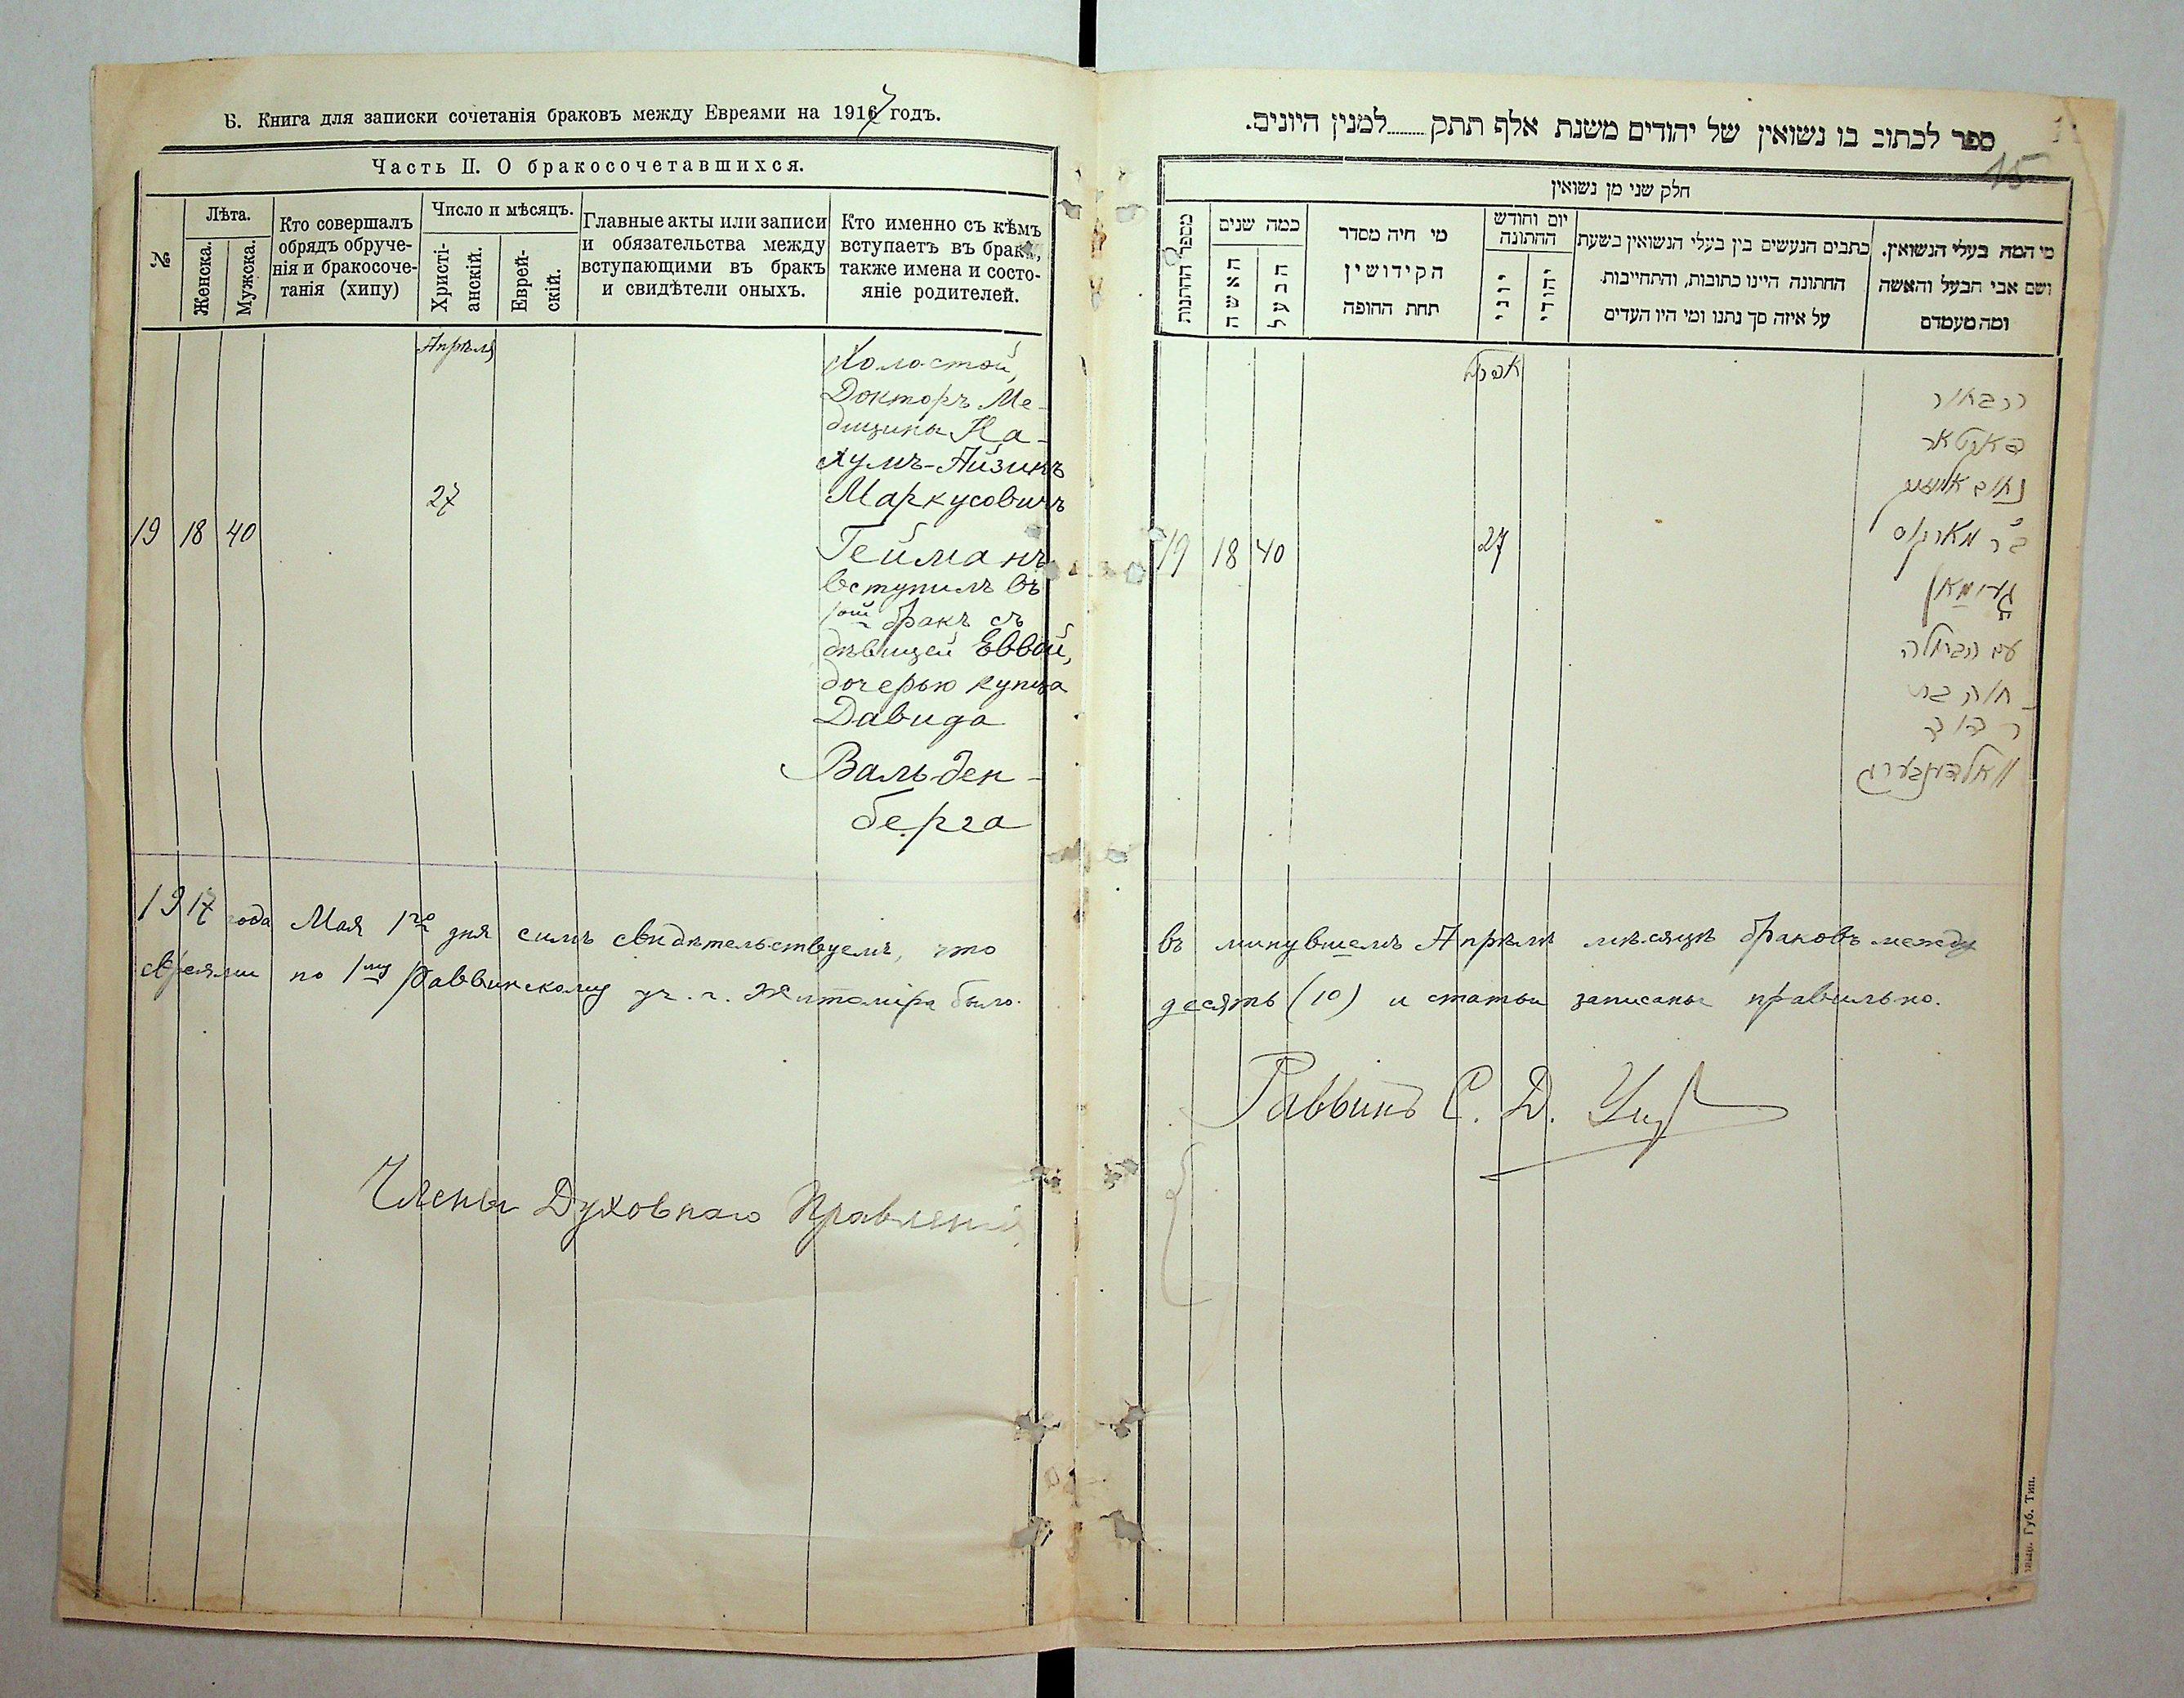 Б. Книга для записки сочетанія браковъ между Евреями на 1917 годъ.
Часть II. О бракосочетавшихся.
№
Лѣта.
Женска.
Мужска.
Кто совершалъ
обрядъ обруче-
нія и бракосоче-
танія (хипу)
Число и мѣсяцъ.
Христі-
анскій.
Еврей-
скій.
Главные акты или записи
и обязательства между
вступающими въ бракъ
и свидѣтели оныхъ.
Кто именно съ кѣмъ
вступаетъ въ бракъ,
также имена и состо-
яніе родителей.
Апрѣля
27
19 18 40
Холостой,
Докторъ Ме-
дицины На-
хумъ-Айзикъ
Маркусовичъ
Гейманъ
вступилъ въ
1ой бракъ съ
дѣвицей Еввой,
дочерью купца
Давида
Вальден-
берга
1917 года Мая 1го дня симъ свидѣтельствуемъ, что
евреями по 1му Раввинскому уч. г. Житоміра было
Члены Духовнаго Правленія
ספר לכתוב בו נשואין של יהודים משנת אלף תתק........למנין היונים.
15
חלק שני מן נשואין
מספר החתנות
כמה שנים
האשה
הבעל
מי היה מסדר
הקידושין
תחת החופה
יום וחודש
החתונה
יוני
יהודי
כתבים הנעשים בין בעלי הנשואין בשעת
החתונה היינו כתובות, והתחייבות
על איזה סך נתנו ומי היו העדים
מי המה בעלי הנשואין.
ושם אבי הבעל והאשה
ומה מעמדם
19 18 40
27
הבחור
דאקטאר
נחום אייזיק
בר מארקוס
גיימאן
עם הבתולה
חוה בת
ר דוד
וואלדענבערג
въ минувшемъ Апрѣлѣ мѣсяцѣ браковъ между
десять (10) и статьи записаны правильно.
Раввинъ С. Д.
Губ. Тип.